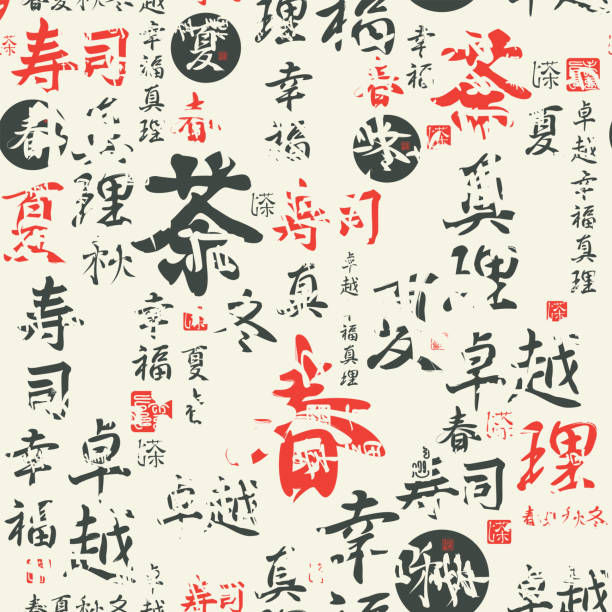 春夏秋冬
幸福真理
理
福
夏
幸福
茶
寿司
真理
幸福
春
夏
卓越幸福真理
春
茶
寿司
真理
夏
秋
茶
真
卓越
幸福真理
寿司
幸福
冬
夏
卓越
春
春
理
幸福
卓越
茶
寿司
卓越
春夏秋冬
幸福
真
寿司
春夏秋冬
卓越